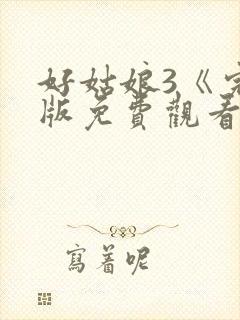 好姑娘3《完
版免費觀看
寫着呢